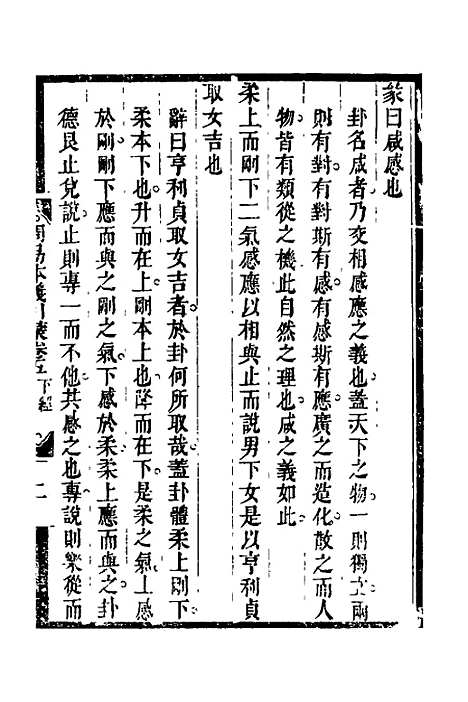 彖曰咸感也
卦名咸者乃交相感應之義也蓋天下之物一則獨立兩
則有對有對斯有感有感斯有應廣之而造化散之而人
物皆有類從之機此自然之理也咸之義如此
柔上而剛下二氣感應以相與止而說男下女是以亨利貞
取女吉也
辭曰亨利貞取女吉者於卦何所取哉蓋卦體柔上剛下
柔本下也升而在上剛本上也降而在下是柔之氣上感
於剛剛下應而與之剛之氣下感於柔柔上應而與之卦
德艮止兌說止則專一而不他其感之也專說則樂從而
周易本義引蒙卷五下經 二